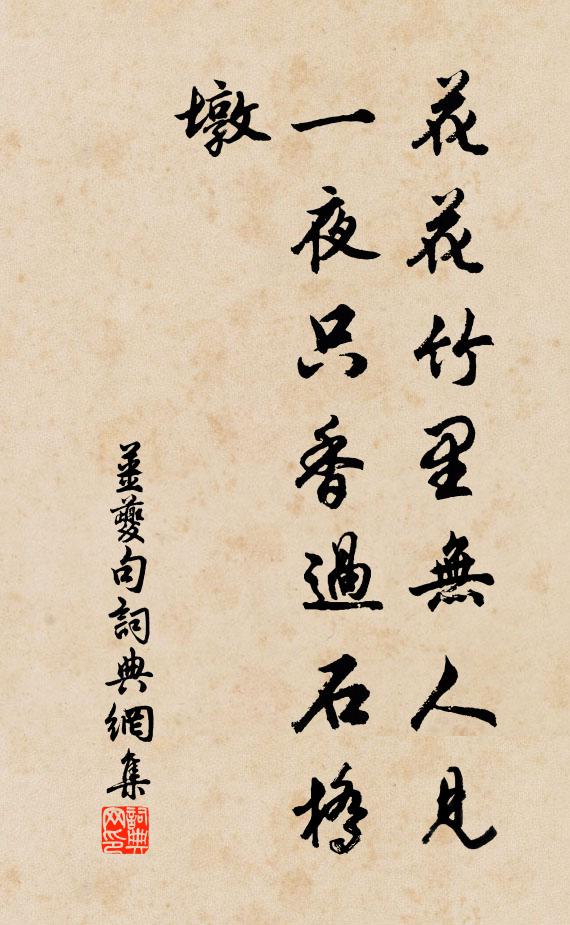 花花竹里無人見
一夜只香過石橋
墩
薑夔句詞典網集
詞典
网印